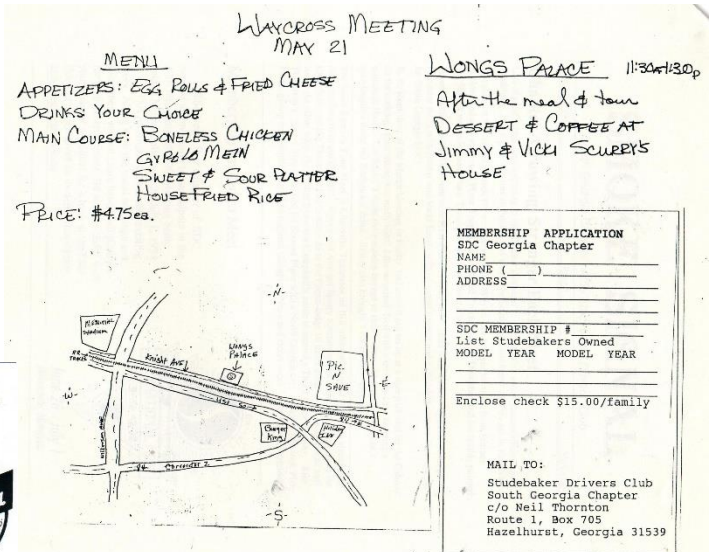 WAYCROSS MEETING
MAY 21
MENU
APPETIZERS: EGG ROLLS & FRIED CHEESE
DRINKS YOUR CHOICE
MAIN COURSE: BONELESS CHICKEN
LO MEIN
SWEET & SOUR PLATTER
HOUSE FRIED RICE
PRICE: $4.75 ea.
WONGS PALACE 11:30
After the meal & tour
DESSERT & COFFEE AT
Jimmy & VICKI SCURRY'S
HOUSE
-N-
MEMORIAL
STADIUM
RR
TRACKS
Knight AVE
WONGS
PALACE
PIC
N
SAVE
-W-
E
US 1
Burger
King
Holiday
INN
84
-S-
MEMBERSHIP APPLICATION
SDC Georgia Chapter
NAME
PHONE ( )
ADDRESS
SDC MEMBERSHIP #
List Studebakers Owned
MODEL YEAR MODEL YEAR
Enclose check $15.00/family
MAIL TO:
Studebaker Drivers Club
South Georgia Chapter
c/o Neil Thornton
Route 1, Box 705
Hazelhurst, Georgia 31539